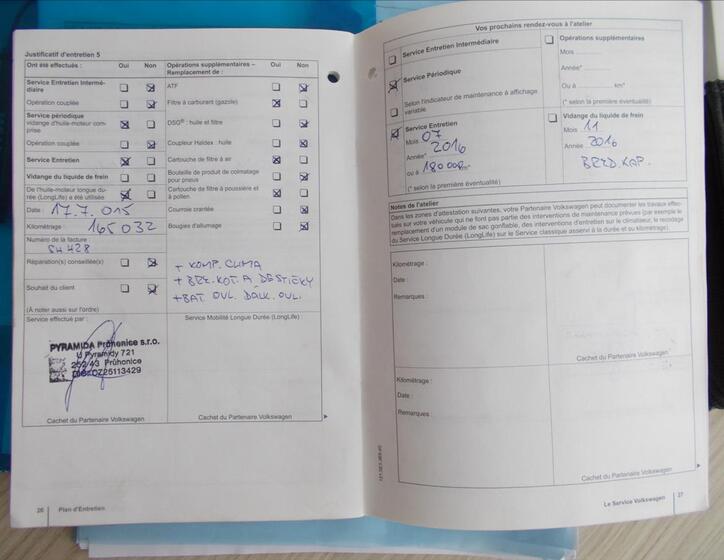 Justificatif d'entretien 5
Ont été effectués : Oui Non
Service Entretien Intermé-
diaire
Opération couplée
Service périodique
vidange d'huile-moteur com-
prise
Opération couplée
Service Entretien
Vidange du liquide de frein
De l'huile-moteur longue du-
rée (LongLife) a été utilisée
Date : 17.7.015
Kilométrage : 165032
Numéro de la facture
SH 428
Réparation(s) conseillée(s)
Souhait du client
(À noter aussi sur l'ordre)
Service effectué par :
PYRAMIDA Průhonice s.r.o.
U Pyramidy 721
252 43 Průhonice
CZ25113429
Cachet du Partenaire Volkswagen
Opérations supplémentaires –
Remplacement de : Oui Non
ATF
Filtre à carburant (gazole)
DSG® : huile et filtre
Coupleur Haldex : huile
Cartouche de filtre à air
Bouteille de produit de colmatage
pour pneus
Cartouche de filtre à poussière et
à pollen
Courroie crantée
Bougies d'allumage
+ KOMP. CLIMA
+ BRZ. KOT. A DESTICKY
+ BAT. OVL. DALK. OVL.
Service Mobilité Longue Durée (LongLife) :
Cachet du Partenaire Volkswagen
26 Plan d'Entretien
Vos prochains rendez-vous à l'atelier
Service Entretien Intermédiaire
Service Périodique
Selon l'indicateur de maintenance à affichage
variable
Service Entretien
Mois 07
2016
Année*
ou à 180 000 km*
(* selon la première éventualité)
Opérations supplémentaires
Mois
Année*
Ou à km*
(* selon la première éventualité)
Vidange du liquide de frein
Mois 11
Année 2016
BRZD. KAP.
Notes de l'atelier
Dans les zones d'attestation suivantes, votre Partenaire Volkswagen peut documenter les travaux effec-
tués sur votre véhicule qui ne font pas partie des interventions de maintenance prévues (par exemple le
remplacement d'un module de sac gonflable, des interventions d'entretien sur le climatiseur, le recodage
du Service Longue Durée (LongLife) sur le Service classique asservi à la durée et au kilométrage).
Kilométrage :
Date :
Remarques :
Cachet du Partenaire Volkswagen
Kilométrage :
Date :
Remarques :
Cachet du Partenaire Volkswagen
Le Service Volkswagen 27